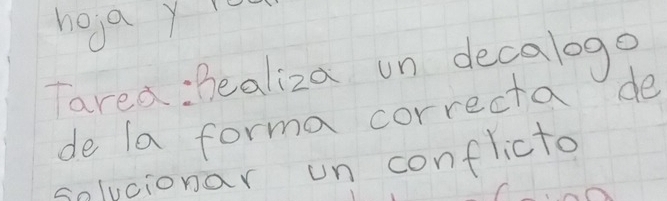 hoja y
Tarea: Realiza un decalogo
de la forma correcta de
solucionar un conflicto